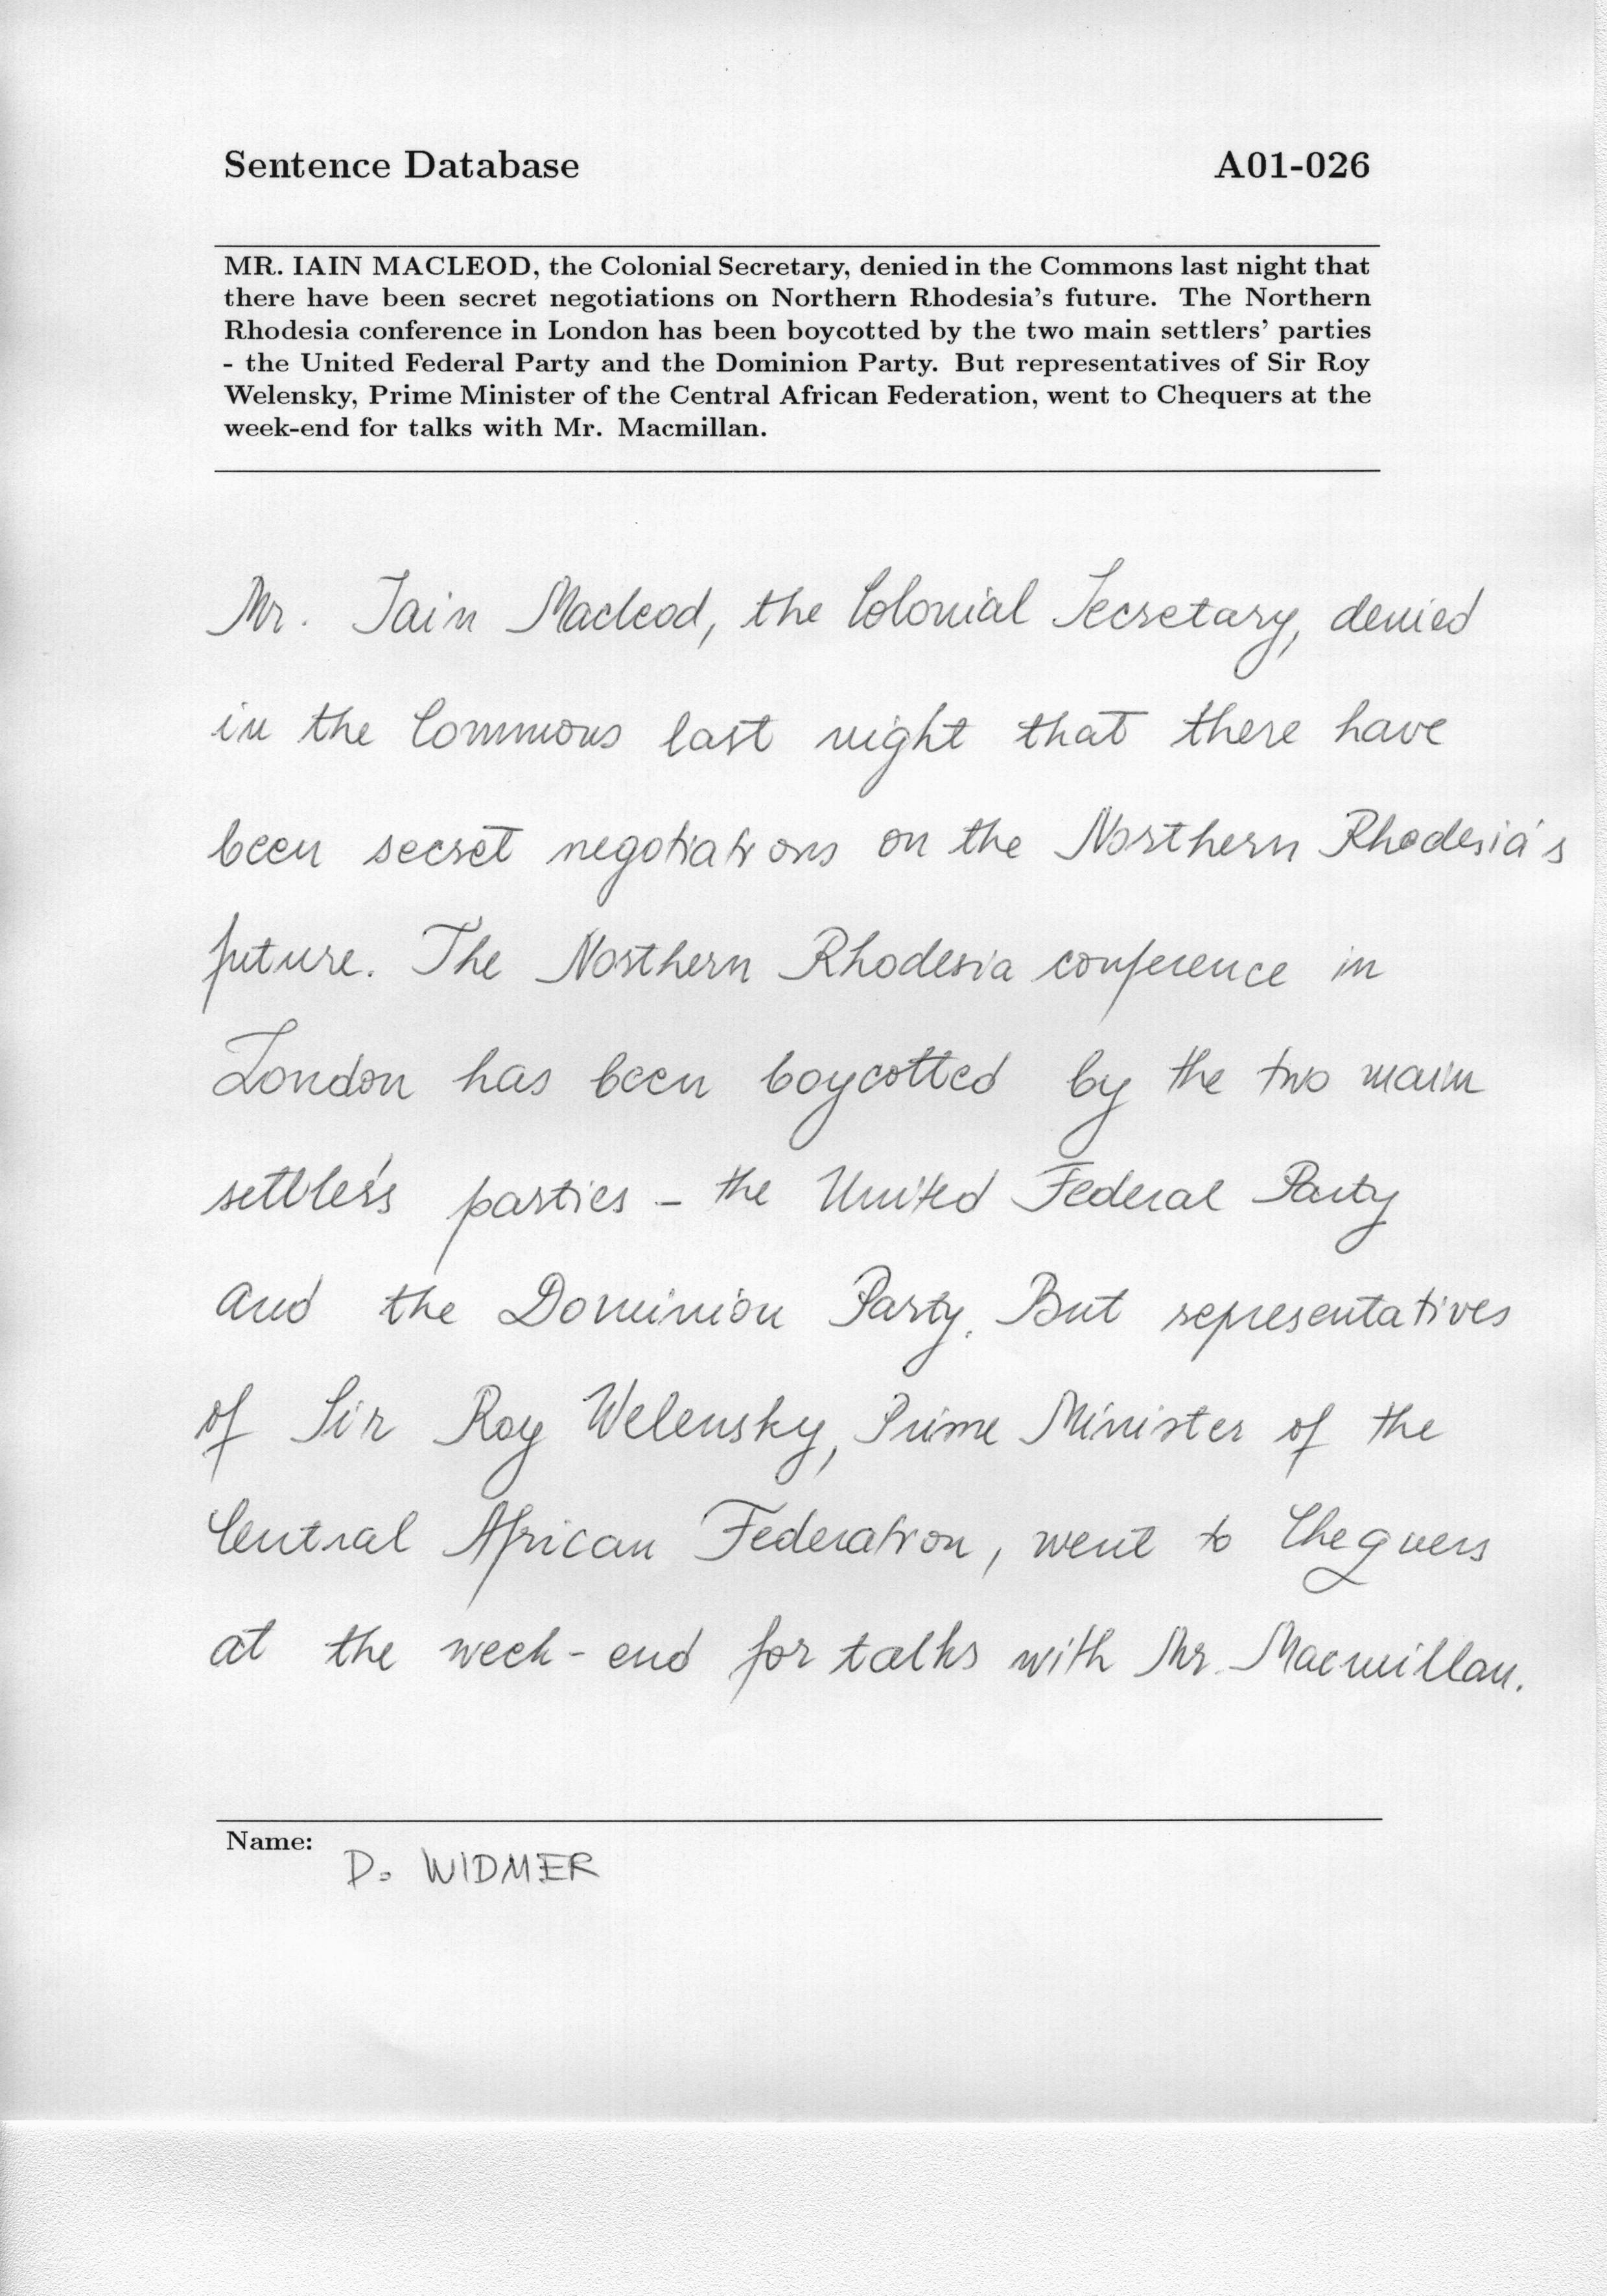 Sentence Database A01-026
MR. IAIN MACLEOD, the Colonial Secretary, denied in the Commons last night that
there have been secret negotiations on Northern Rhodesia's future. The Northern
Rhodesia conference in London has been boycotted by the two main settlers' parties
- the United Federal Party and the Dominion Party. But representatives of Sir Roy
Welensky, Prime Minister of the Central African Federation, went to Chequers at the
week-end for talks with Mr. Macmillan.
Mr. Iain Macleod, the Colonial Secretary, denied
in the Commons last night that there have
been secret negotiations on the Northern Rhodesia's
future. The Northern Rhodesia conference in
London has been boycotted by the two main
settler's parties - the United Federal Party
and the Dominion Party. But representatives
of Sir Roy Welensky, Prime Minister of the
Central African Federation, went to Chequers
at the week-end for talks with Mr. Macmillan.
Name:
D. WIDMER